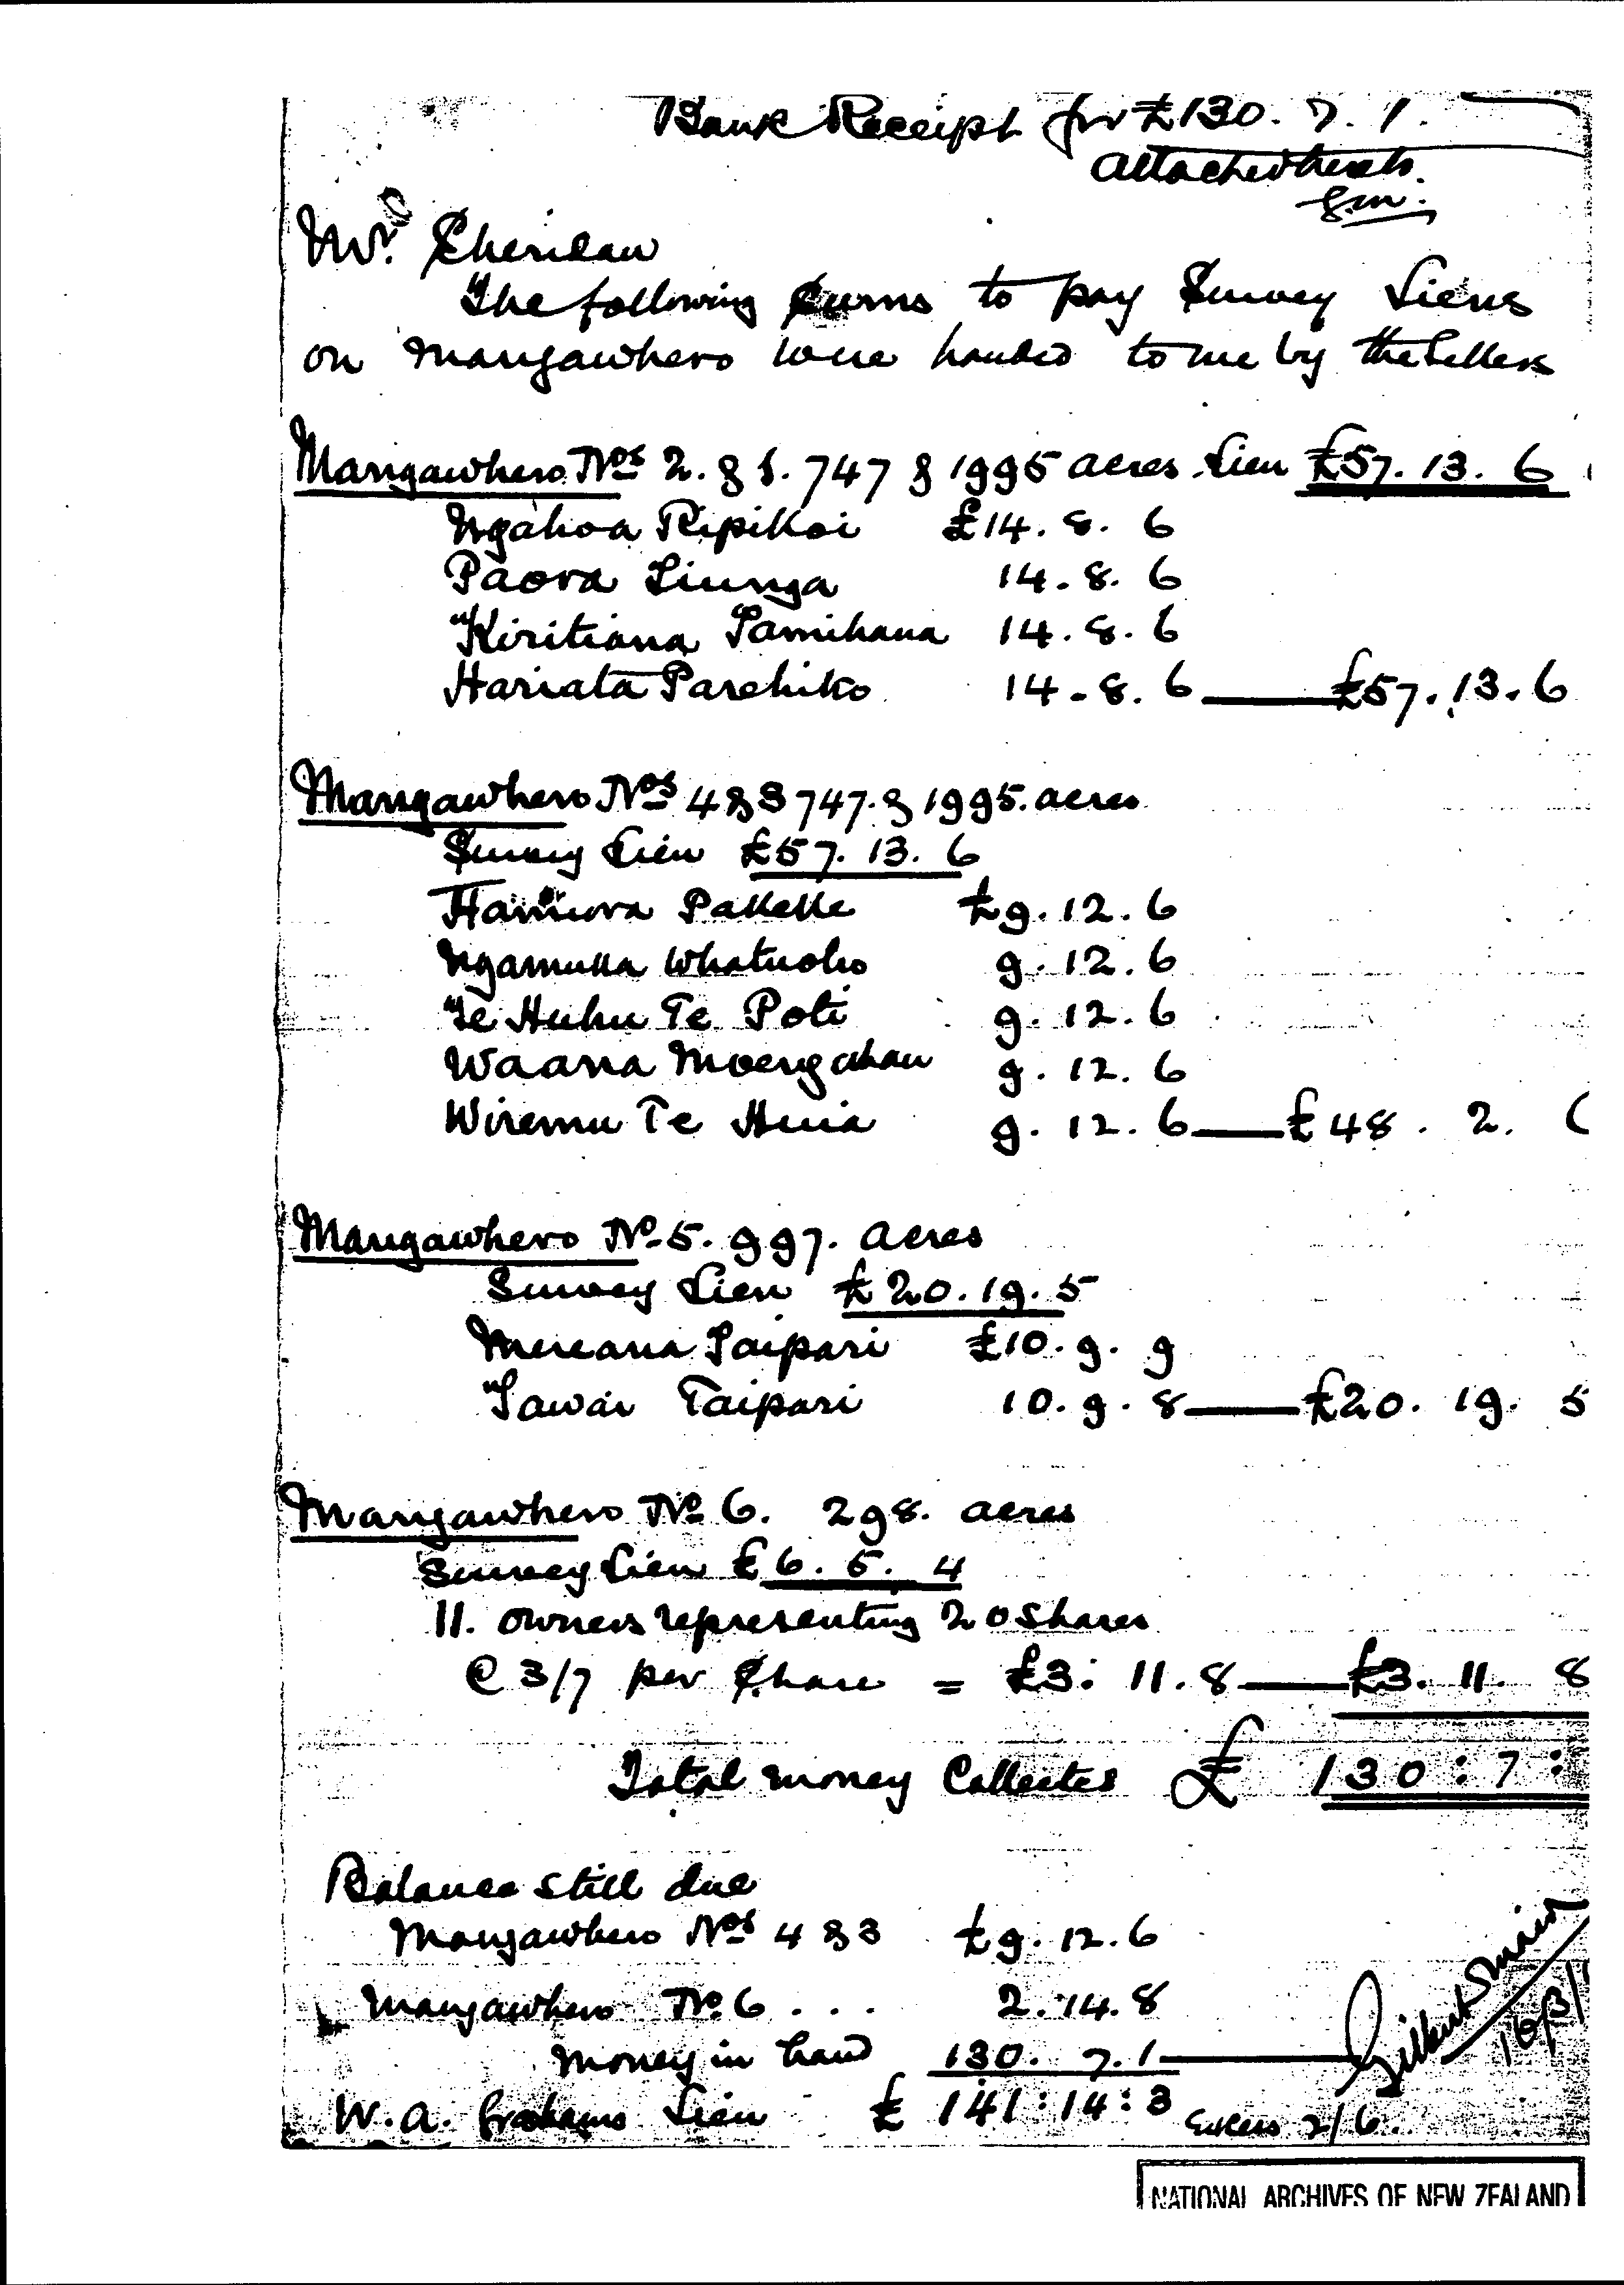 Bank Receipt for £130. 7. 1.
attached herewith.
G.M.
Mr. Sheridan
The following sums to pay Survey Liens
on Mangawhero were handed to me by the Sellers
Mangawhero Nos 2. & 1. 747 & 1995 acres Lien £57. 13. 6
Ngahoa Ripikoi £14. 8. 6
Paora Tiunga 14. 8. 6
Kiritiana Tamihana 14. 8. 6
Hariata Parehiko 14. 8. 6 — £57. 13. 6
Mangawhero Nos 4 & 3 747. & 1995. acres
Survey Lien £57. 13. 6
Hamiora Pakeke £9. 12. 6
Ngamuka Whatuoho 9. 12. 6
Te Huhu Te Poti 9. 12. 6
Waana Moengahau 9. 12. 6
Wiremu Te Huia 9. 12. 6 — £48. 2.
Mangawhero No 5. 997. acres
Survey Lien £20. 19. 5
Mereana Taipari £10. 9. 9
Tawai Taipari 10. 9. 8 — £20. 19. 5
Mangawhero No 6. 298. acres
Survey Lien £6. 5. 4
11. owners representing 20 Shares
@ 3/7 per Share = £3: 11. 8 — £3. 11. 8
Total money Collected £ 130 : 7 :
Balance still due
Mangawhero Nos 4 & 3 £9. 12. 6
Mangawhero No 6 . . . 2. 14. 8
Money in hand 130. 7. 1
Gilbert Mair
W. A. Grahams Lien £ 141 : 14 : 3 2/6
NATIONAL ARCHIVES OF NEW ZEALAND